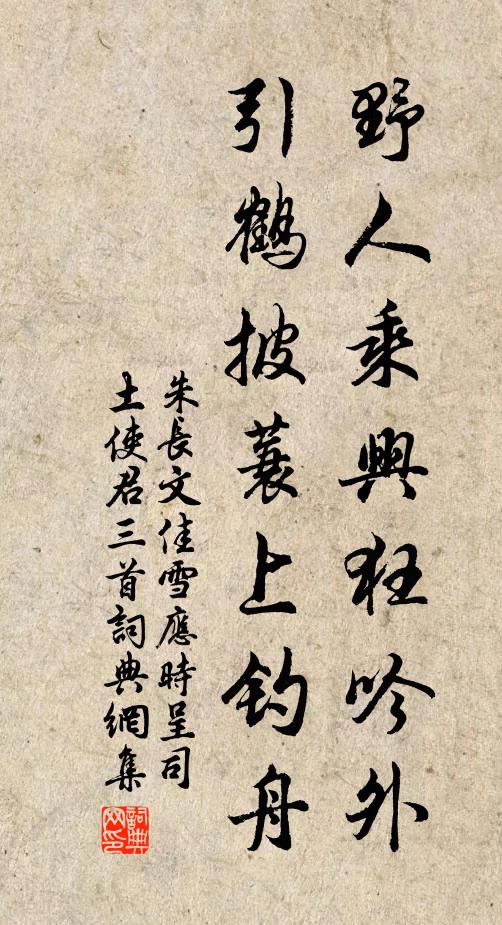 野人乘興狂吟外
引鶴披蓑上釣舟
朱長文佳雪應時呈司
土使君三首詞典網集
詞典网印